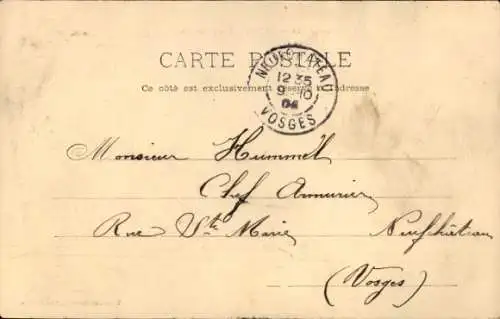 CARTE POSTALE
NEUFCHATEAU
12 35
9 - 10
04
VOSGES
Ce côté est exclusivement réservé à l'adresse
Monsieur Hummel
Chef Armurier
Rue Ste Marie Neufchâteau
(Vosges)